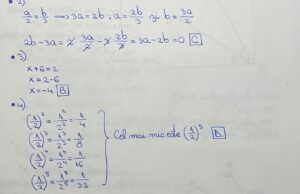 • 2)
a/2 = b/3 ⟹ 3a=2b ; a = 2b/3 și b = 3a/2
2b-3a = 2 · 3a/2 - 3 · 2b/3 = 3a-2b=0 C
• 3)
x+6=2
x=2-6
x=-4 B
• 4)
(1/2)² = 1²/2² = 1/4
(1/2)³ = 1³/2³ = 1/8
(1/2)⁴ = 1⁴/2⁴ = 1/16
(1/2)⁵ = 1⁵/2⁵ = 1/32
Cel mai mic este (1/2)⁵. D